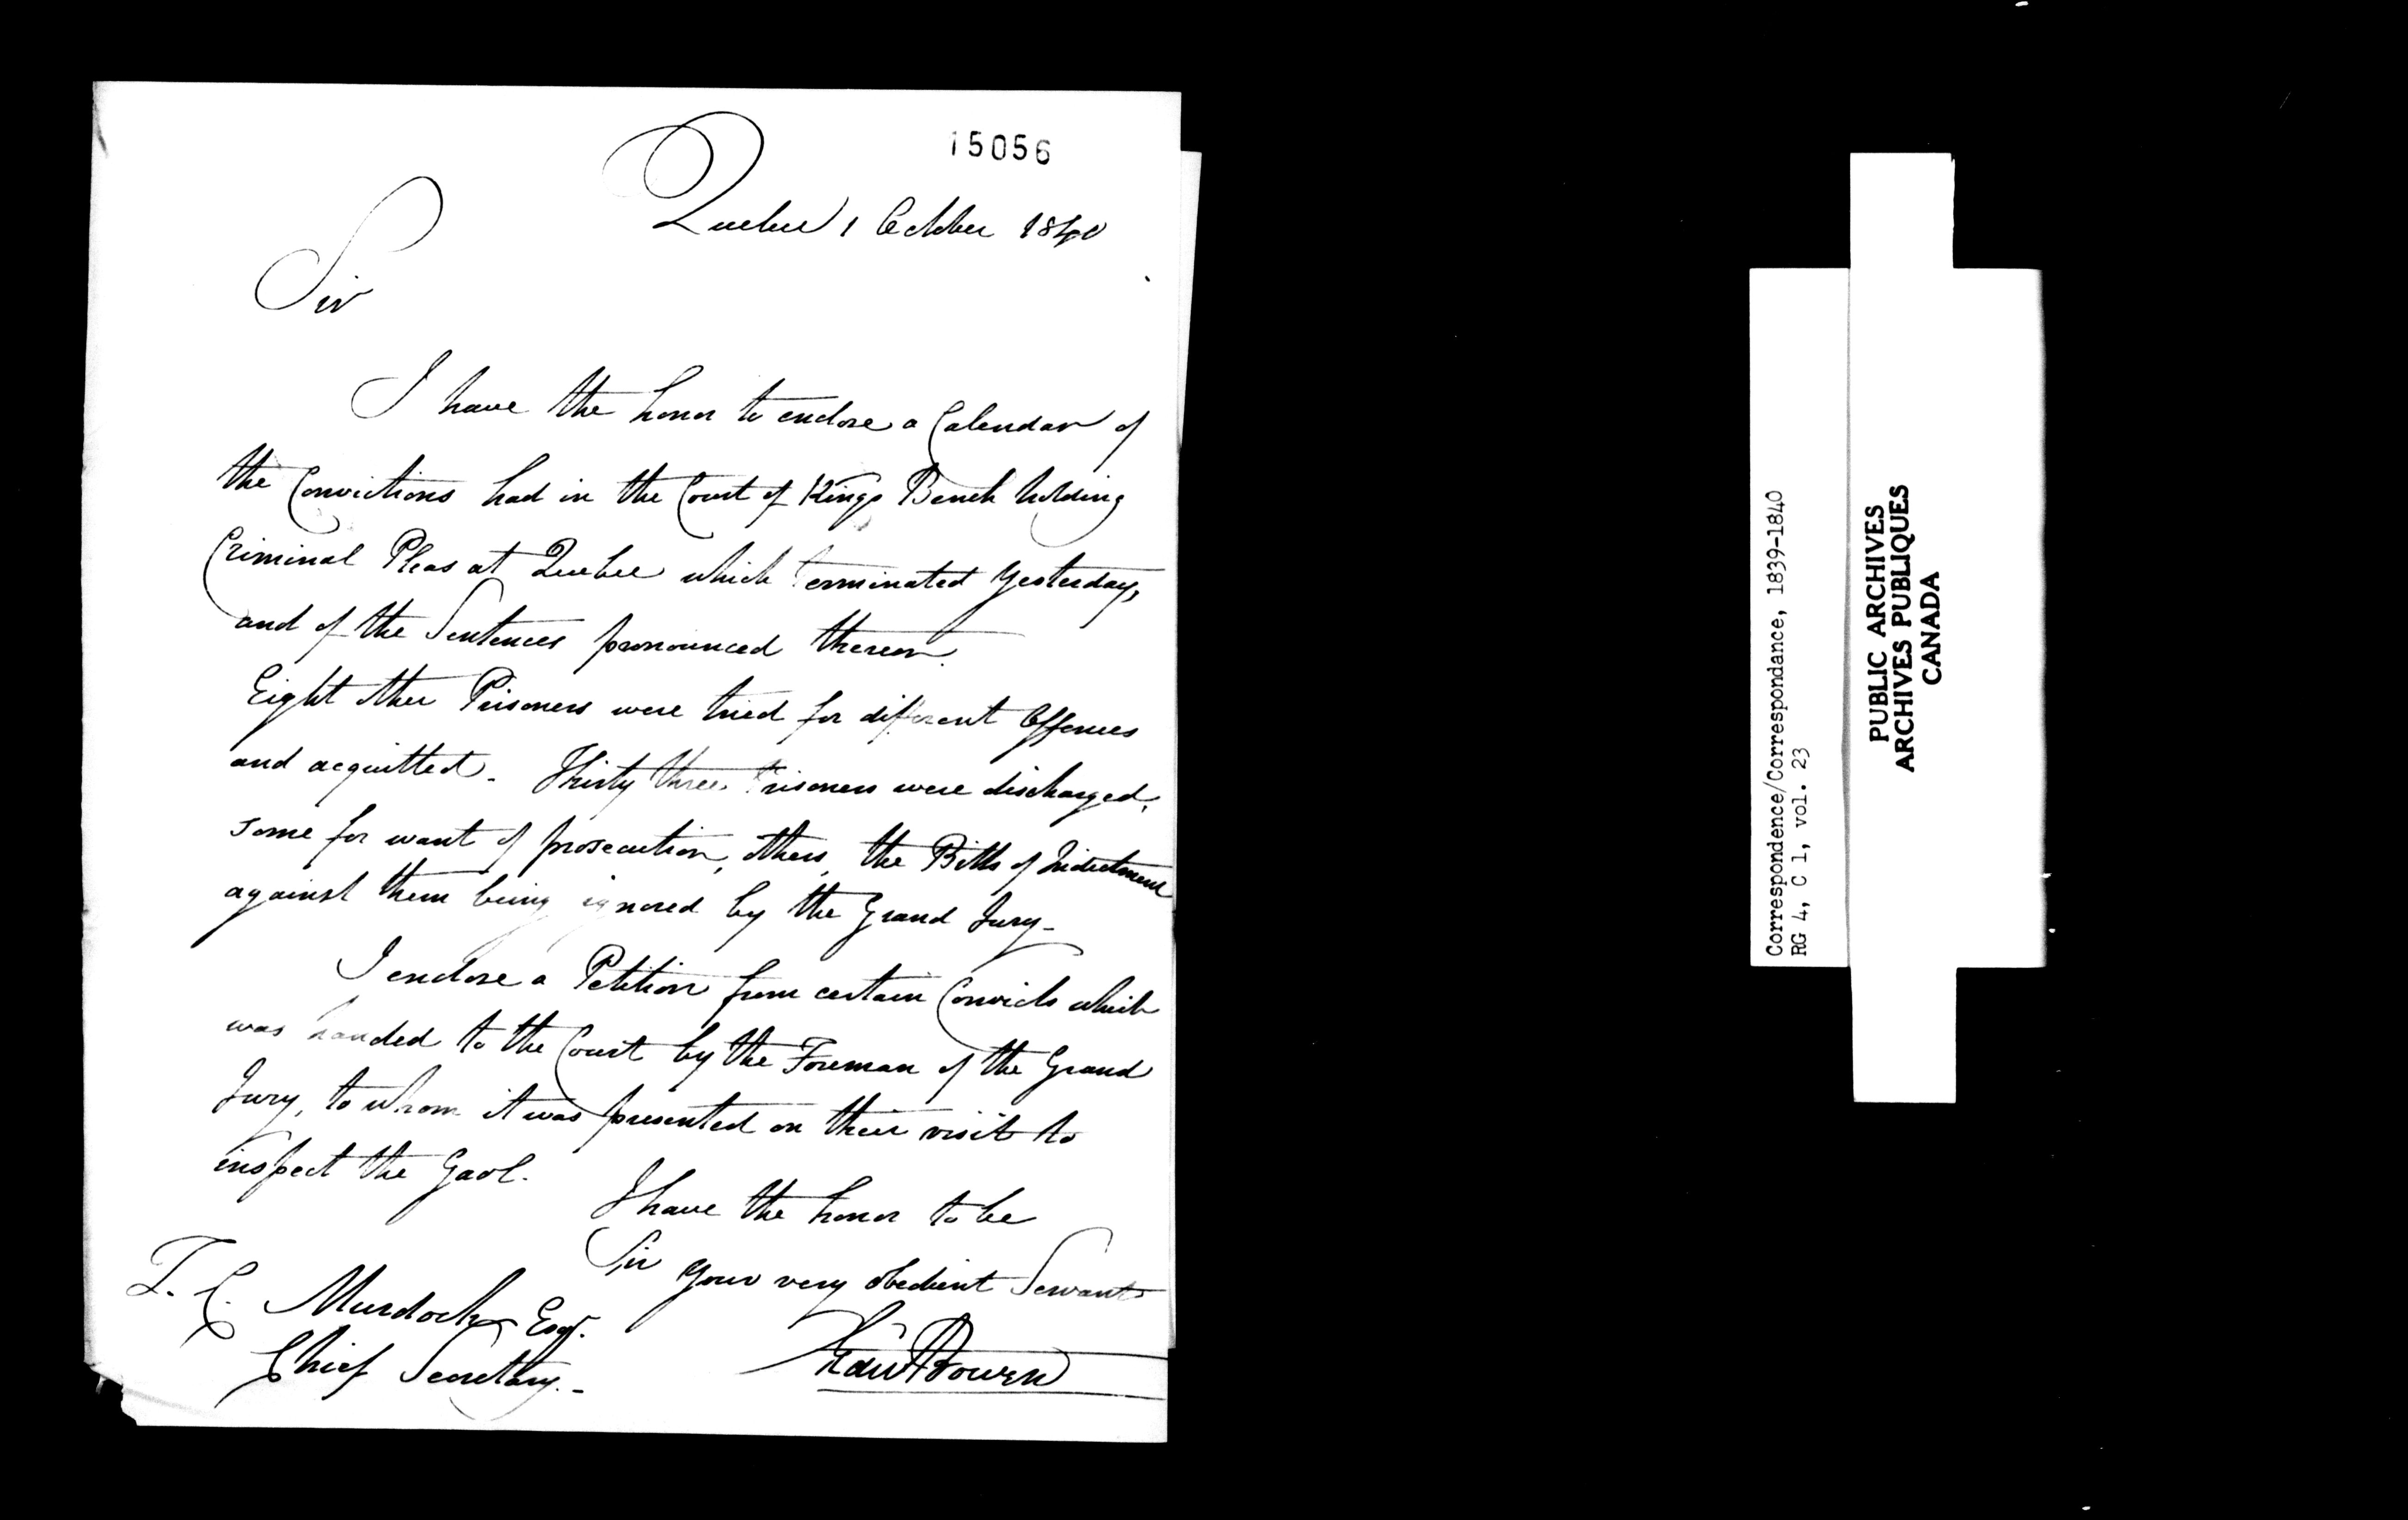 15056
Quebec 1 October 1840
Sir
I have the honor to enclose a Calendar of
the Convictions had in the Court of Kings Bench holding
Criminal Pleas at Quebec which terminated yesterday,
and of the Sentences pronounced thereon.
Eight other Prisoners were tried for different Offences
and acquitted. Thirty three Prisoners were discharged,
some for want of prosecution, others, the Bills of Indictment
against them being ignored by the Grand Jury.
I enclose a Petition from certain Convicts which
was handed to the Court by the Foreman of the Grand
Jury, to whom it was presented on their visit to
inspect the Gaol.
I have the honor to be
Sir your very obedient Servant
Edwd Bowen
T. C. Murdoch Esqr.
Chief Secretary.-
Correspondence/Correspondance, 1839-1840
RG 4, C 1, vol. 23
PUBLIC ARCHIVES
ARCHIVES PUBLIQUES
CANADA